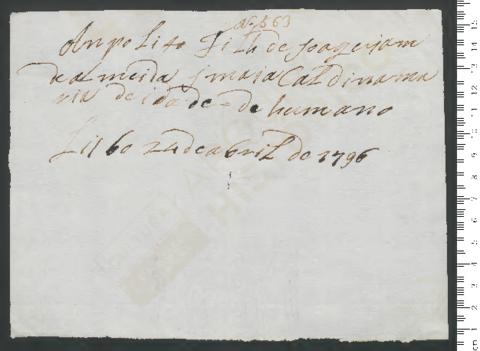 nº 863
Anpolito Filho de Joaqerjam
dealmeida jmaja Caldinama
ria de idade de humano
Lisbo 24 de abril de 1796